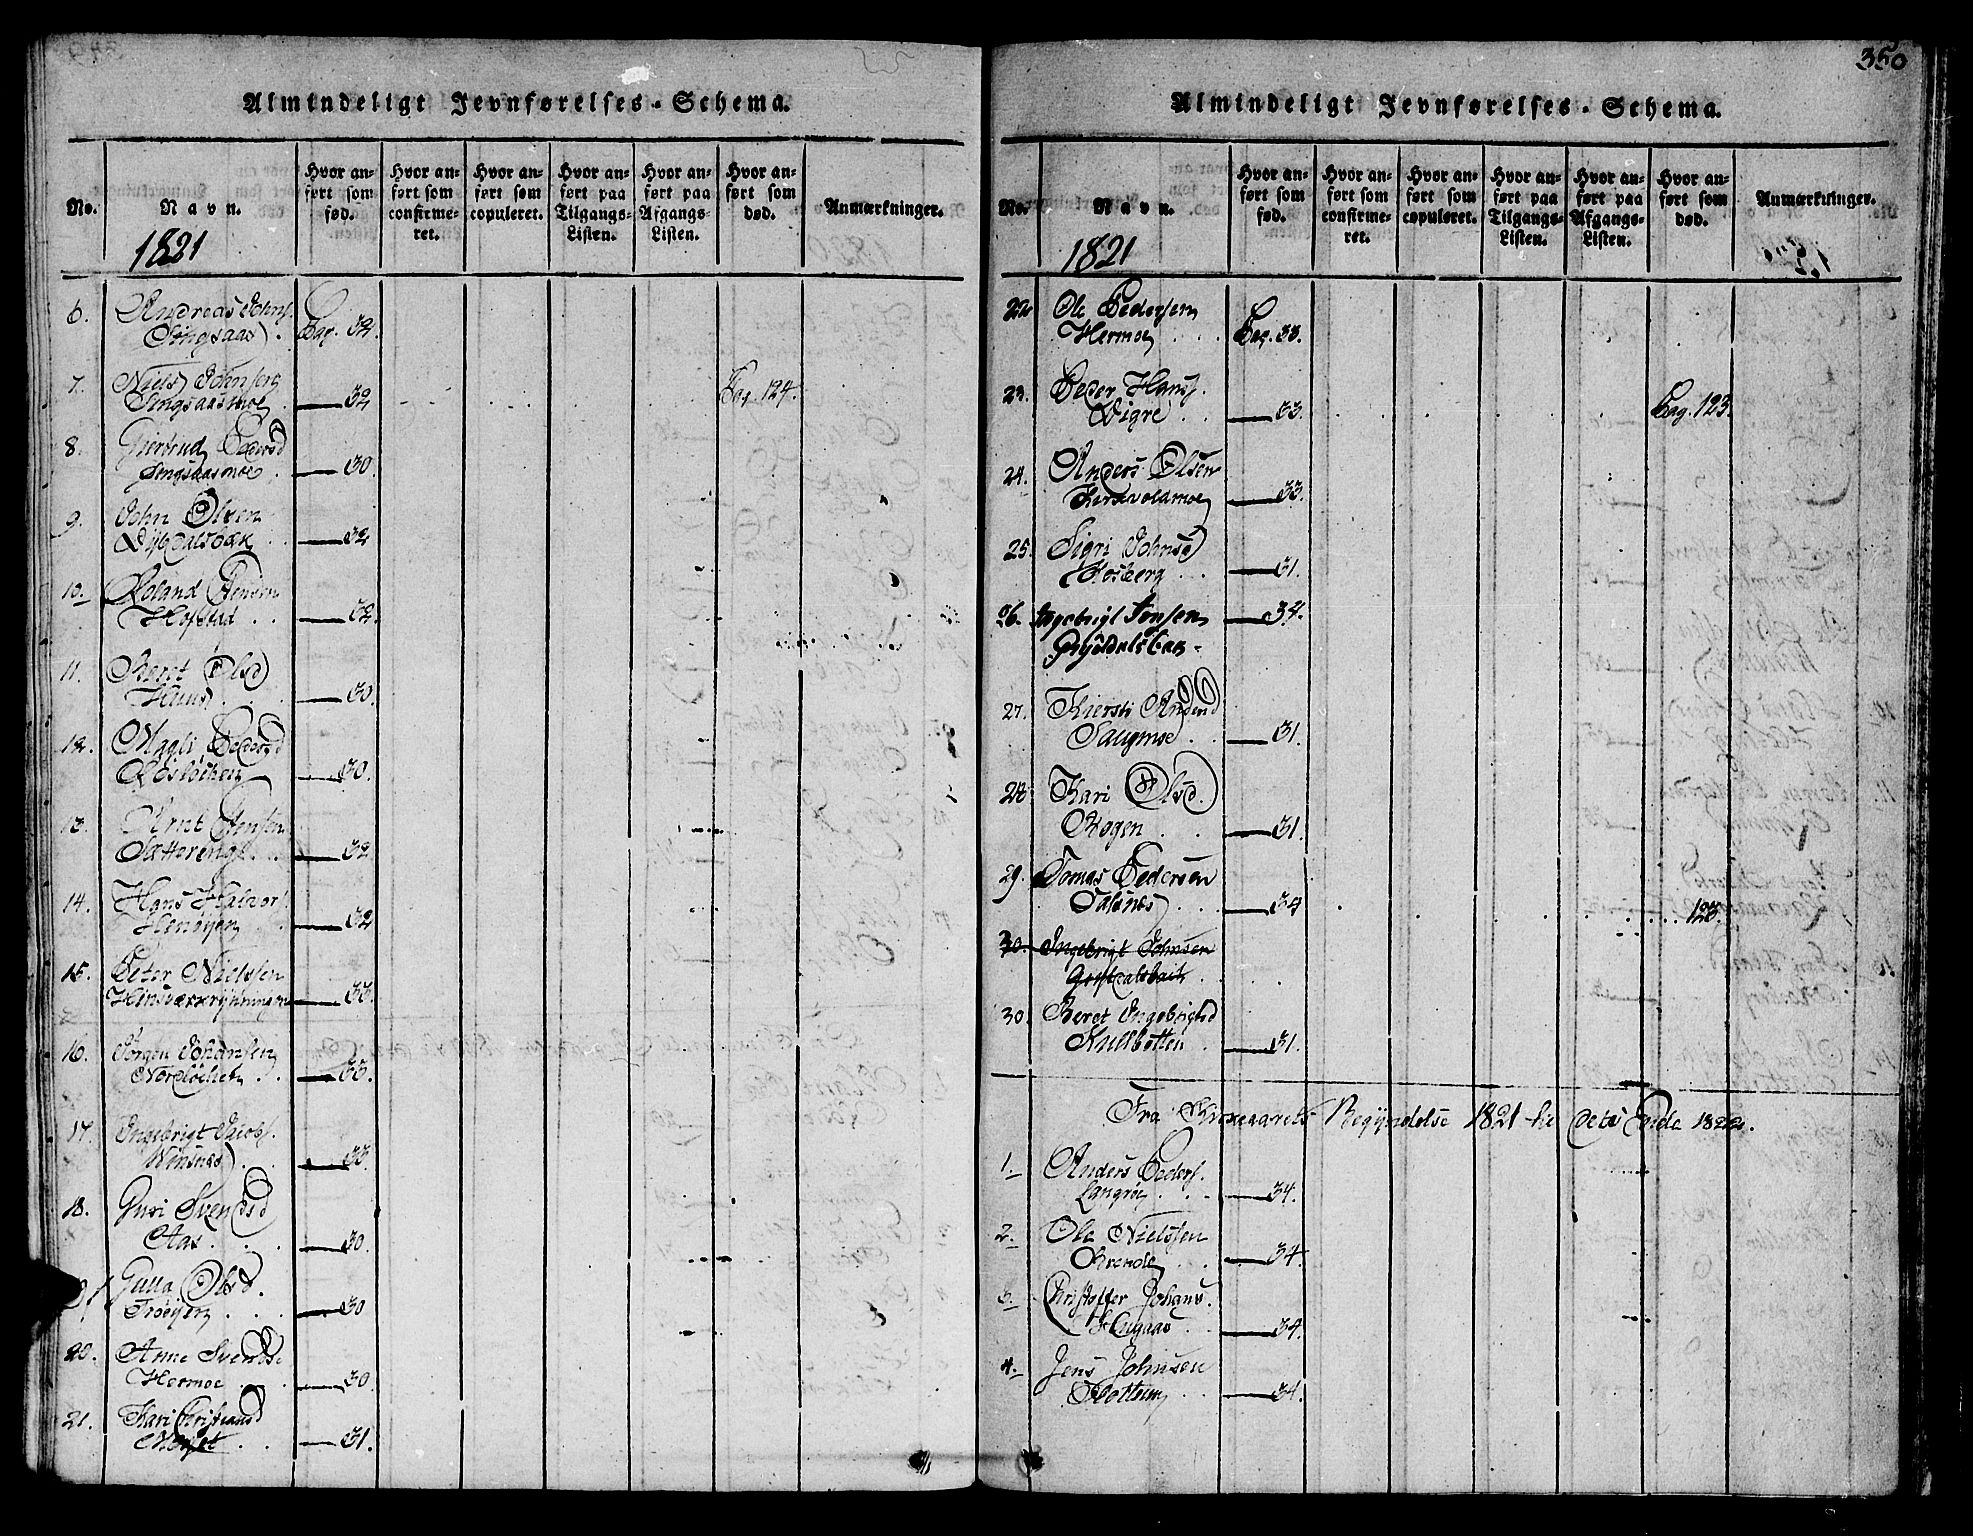 Almindeligt Jevnførelses-Schema.
No. Navn. Hvor anført som fød. Hvor anført som confirmeret. Hvor anført som copuleret. Hvor anført paa Tilgangs-Listen. Hvor anført paa Afgangs-Listen. Hvor anført som død. Anmærkninger.
1821
6. Andreas Johns.
Singsaas. Pag. 32.
7. Niels Johnsen
Singsaasmoe 32 Pag. 124.
8. Giertrud Pedersd
Singsaasmoe. 30.
9. John Olsen
Dybdalsbak 32
10. Roland Jensen
Hofstad 32.
11. Beret Olsd
Huus 30.
12. Magli Pedersd
Røsløchen 30.
13. Arnt Jensen
Sætereng 32
14. Hans Halvors.
Henøyen 32
15. Peter Nielssen
33
16. Jørgen Johansen
Nordløchen 33.
17. Ingebrigt Jacobs.
Winsnes 33.
18. Guri Svendsd
Aas. 30.
Gulla Olsd.
Trøeyen 30
20. Anne Svendsd
Hermoe 30.
21. Kari Christiansd
31.
350
Almindeligt Jevnførelses-Schema.
No. Navn. Hvor anført som fød. Hvor anført som confirmeret. Hvor anført som copuleret. Hvor anført paa Tilgangs-Listen. Hvor anført paa Afgangs-Listen. Hvor anført som død. Anmærkninger.
1821
22 Ole Pedersen
Hermoe Pag. 33.
23. Peder Hans.
Vigre 33. Pag. 123.
24. Anders Olsen
Kirkevoldmoe 33.
25. Sigri Johnsd
Kosberg 31.
26. Ingebrigt Jonsen 34.
27. Kiersti Andersd
Saugmoe 31.
28. Kari Olsd.
Kogen 31.
29. Tomas Pedersen
Talsnes 34 123.
30. Ingebrigt Johnsen
30. Beret Ingebrigtsd
Kulbotten 31.
Fra Kirkeaarets Begyndelse 1821 til dets Ende 1822.
1. Anders Peders.
Langrøe 34.
2. Ole Nielssen
Brende 34.
3. Christoffer Johans.
Haugaas 34.
4. Jens Johnsen
Flottum 34.